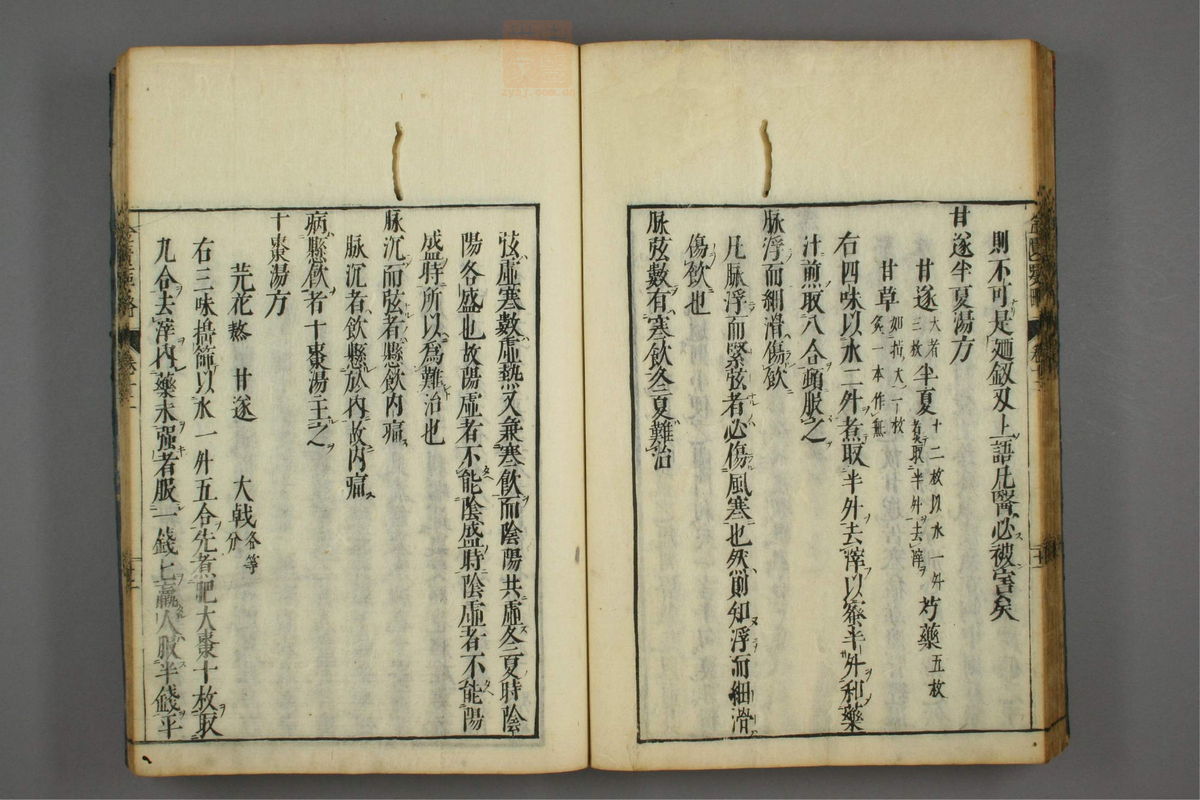 則不可是麺釼刄上語凡醫必被害矣
甘遂半夏湯方
甘遂大者三枚 半夏十二枚以水一升煮取半升去滓 芍藥五枚
甘草如指大一枚炙一本作無
右四味以水二升煮取半升去滓以蜜半升和藥
汁煎取八合頓服之
脉浮而細滑傷飲
凡脉浮而緊弦者必傷風寒也然則知浮而細滑
傷飲也
脉弦數有寒飲冬夏難治
弦虛寒數虛熱又兼寒飲而陰陽共虛冬夏時陰
陽各盛也故陽虛者不能陰盛時陰虛者不能陽
盛時所以爲難治也
脉沉而弦者懸飲内痛
脉沉者飲懸於内故内痛
病懸飲者十棗湯主之
十棗湯方
芫花熬 甘遂 大戟各等分
右三味搗篩以水一升五合先煮肥大棗十枚取
九合去滓内藥末强者服一錢匕羸人服半錢平